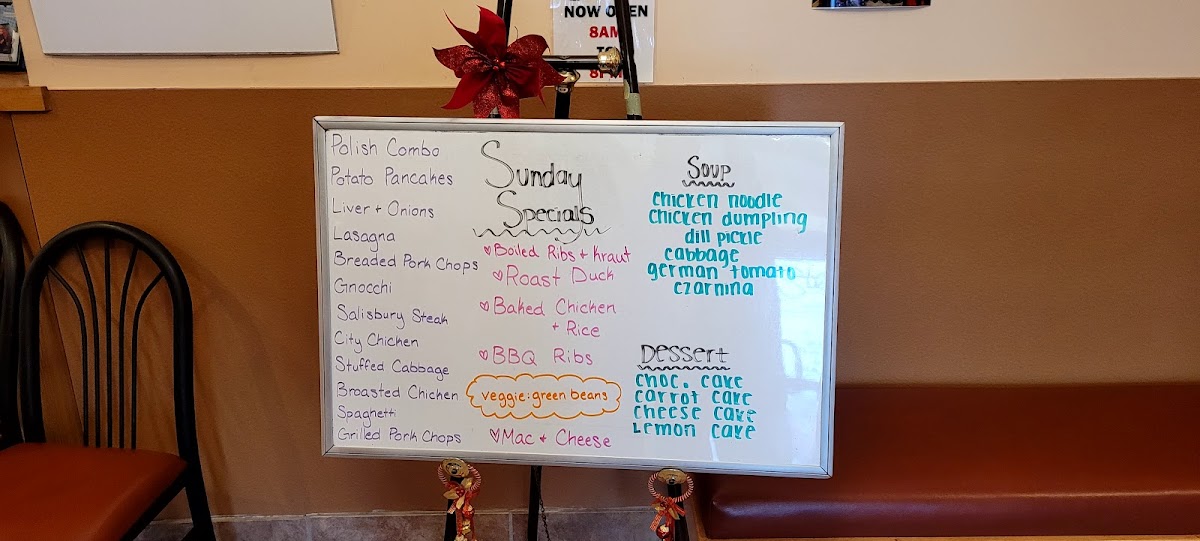 NOW OPEN
8AM
TO
8PM
Polish Combo
Potato Pancakes
Liver + Onions
Lasagna
Breaded Pork Chops
Gnocchi
Salisbury Steak
City Chicken
Stuffed Cabbage
Broasted Chicken
Spaghetti
Grilled Pork Chops
Sunday
Specials
Boiled Ribs + Kraut
Roast Duck
Baked Chicken
+ Rice
BBQ Ribs
veggie: green beans
Mac + Cheese
Soup
chicken noodle
chicken dumpling
dill pickle
cabbage
german tomato
czarnina
Dessert
choc. cake
carrot cake
cheese cake
Lemon cake